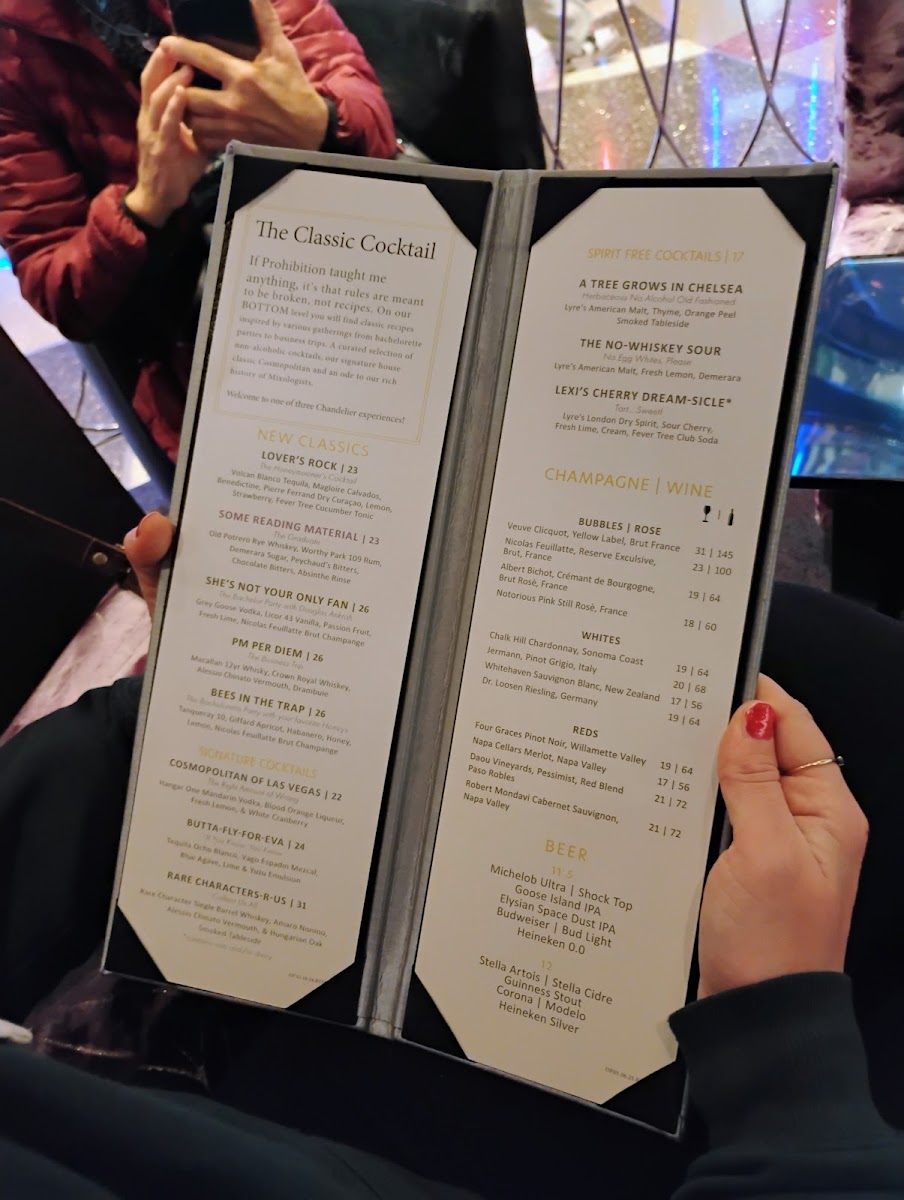 The Classic Cocktail
If Prohibition taught me
anything, it's that rules are meant
to be broken, not recipes. On our
BOTTOM level you will find classic recipes
inspired by various gatherings from bachelorette
parties to business trips. A curated selection of
non-alcoholic cocktails, our signature house
classic Cosmopolitan and an ode to our rich
history of Mixologists.
Welcome to one of three Chandelier experiences!
NEW CLASSICS
LOVER'S ROCK | 23
The Honeymooner's Cocktail
Volcan Blanco Tequila, Magloire Calvados,
Benedictine, Pierre Ferrand Dry Curaçao, Lemon,
Strawberry, Fever Tree Cucumber Tonic
SOME READING MATERIAL | 23
The Graduate
Old Potrero Rye Whiskey, Worthy Park 109 Rum,
Demerara Sugar, Peychaud's Bitters,
Chocolate Bitters, Absinthe Rinse
SHE'S NOT YOUR ONLY FAN | 26
The Bachelor Party with Douglas Ankrah
Grey Goose Vodka, Licor 43 Vanilla, Passion Fruit,
Fresh Lime, Nicolas Feuillatte Brut Champange
PM PER DIEM | 26
The Business Trip
Macallan 12yr Whisky, Crown Royal Whiskey,
Alessio Chinato Vermouth, Drambuie
BEES IN THE TRAP | 26
The Bachelorette Party with your favorite Honeys
Tanqueray 10, Giffard Apricot, Habanero, Honey,
Lemon, Nicolas Feuillatte Brut Champange
SIGNATURE COCKTAILS
COSMOPOLITAN OF LAS VEGAS | 22
The Right Amount of Wrong
Hangar One Mandarin Vodka, Blood Orange Liqueur,
Fresh Lemon, & White Cranberry
BUTTA-FLY-FOR-EVA | 24
If You Know, You Know
Tequila Ocho Blanco, Vago Espadin Mezcal,
Blue Agave, Lime & Yuzu Emulsion
RARE CHARACTERS-R-US | 31
Rare Character Single Barrel Whiskey, Amaro Nonino,
Alessio Chinato Vermouth, & Hungarian Oak
Smoked Tableside
SPIRIT FREE COCKTAILS | 17
A TREE GROWS IN CHELSEA
Herbaceous No Alcohol Old Fashioned
Lyre's American Malt, Thyme, Orange Peel
Smoked Tableside
THE NO-WHISKEY SOUR
No Egg Whites, Please
Lyre's American Malt, Fresh Lemon, Demerara
LEXI'S CHERRY DREAM-SICLE*
Tart... Sweet!
Lyre's London Dry Spirit, Sour Cherry,
Fresh Lime, Cream, Fever Tree Club Soda
CHAMPAGNE | WINE
BUBBLES | ROSE
Veuve Clicquot, Yellow Label, Brut France 31 | 145
Nicolas Feuillatte, Reserve Exculsive, 23 | 100
Brut, France
Albert Bichot, Crémant de Bourgogne, 19 | 64
Brut Rosè, France
Notorious Pink Still Rosè, France 18 | 60
WHITES
Chalk Hill Chardonnay, Sonoma Coast 19 | 64
Jermann, Pinot Grigio, Italy 20 | 68
Whitehaven Sauvignon Blanc, New Zealand 17 | 56
Dr. Loosen Riesling, Germany 19 | 64
REDS
Four Graces Pinot Noir, Willamette Valley 19 | 64
Napa Cellars Merlot, Napa Valley 17 | 56
Daou Vineyards, Pessimist, Red Blend 21 | 72
Paso Robles
Robert Mondavi Cabernet Sauvignon, 21 | 72
Napa Valley
BEER
11.5
Michelob Ultra | Shock Top
Goose Island IPA
Elysian Space Dust IPA
Budweiser | Bud Light
Heineken 0.0
12
Stella Artois | Stella Cidre
Guinness Stout
Corona | Modelo
Heineken Silver